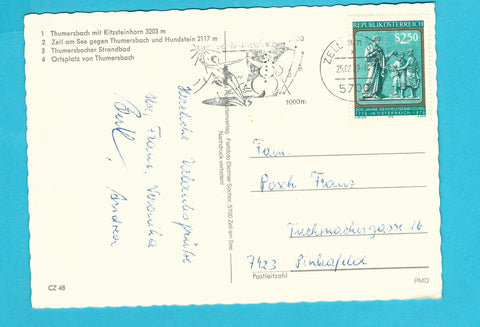 1 Thumersbach mit Kitzsteinhorn 3203 m
2 Zell am See gegen Thumersbach und Hundstein 2117 m
3 Thumersbacher Strandbad
4 Ortsplatz von Thumersbach
REPUBLIK ÖSTERREICH
S2.50
200 JAHRE GEHÖRLOSENBILDUNG
1779 IN ÖSTERREICH 1979
ZELL AM
570
1000m
Herzliche Urlaubsgrüße
Franz, Veronika
Andrea
Farbfoto Dietmar Sochor, 5700 Zell am See
Nachdruck verboten!
Fam.
Posch Franz
16
7423 Pinkafeld
Postleitzahl
CZ 48
PMD